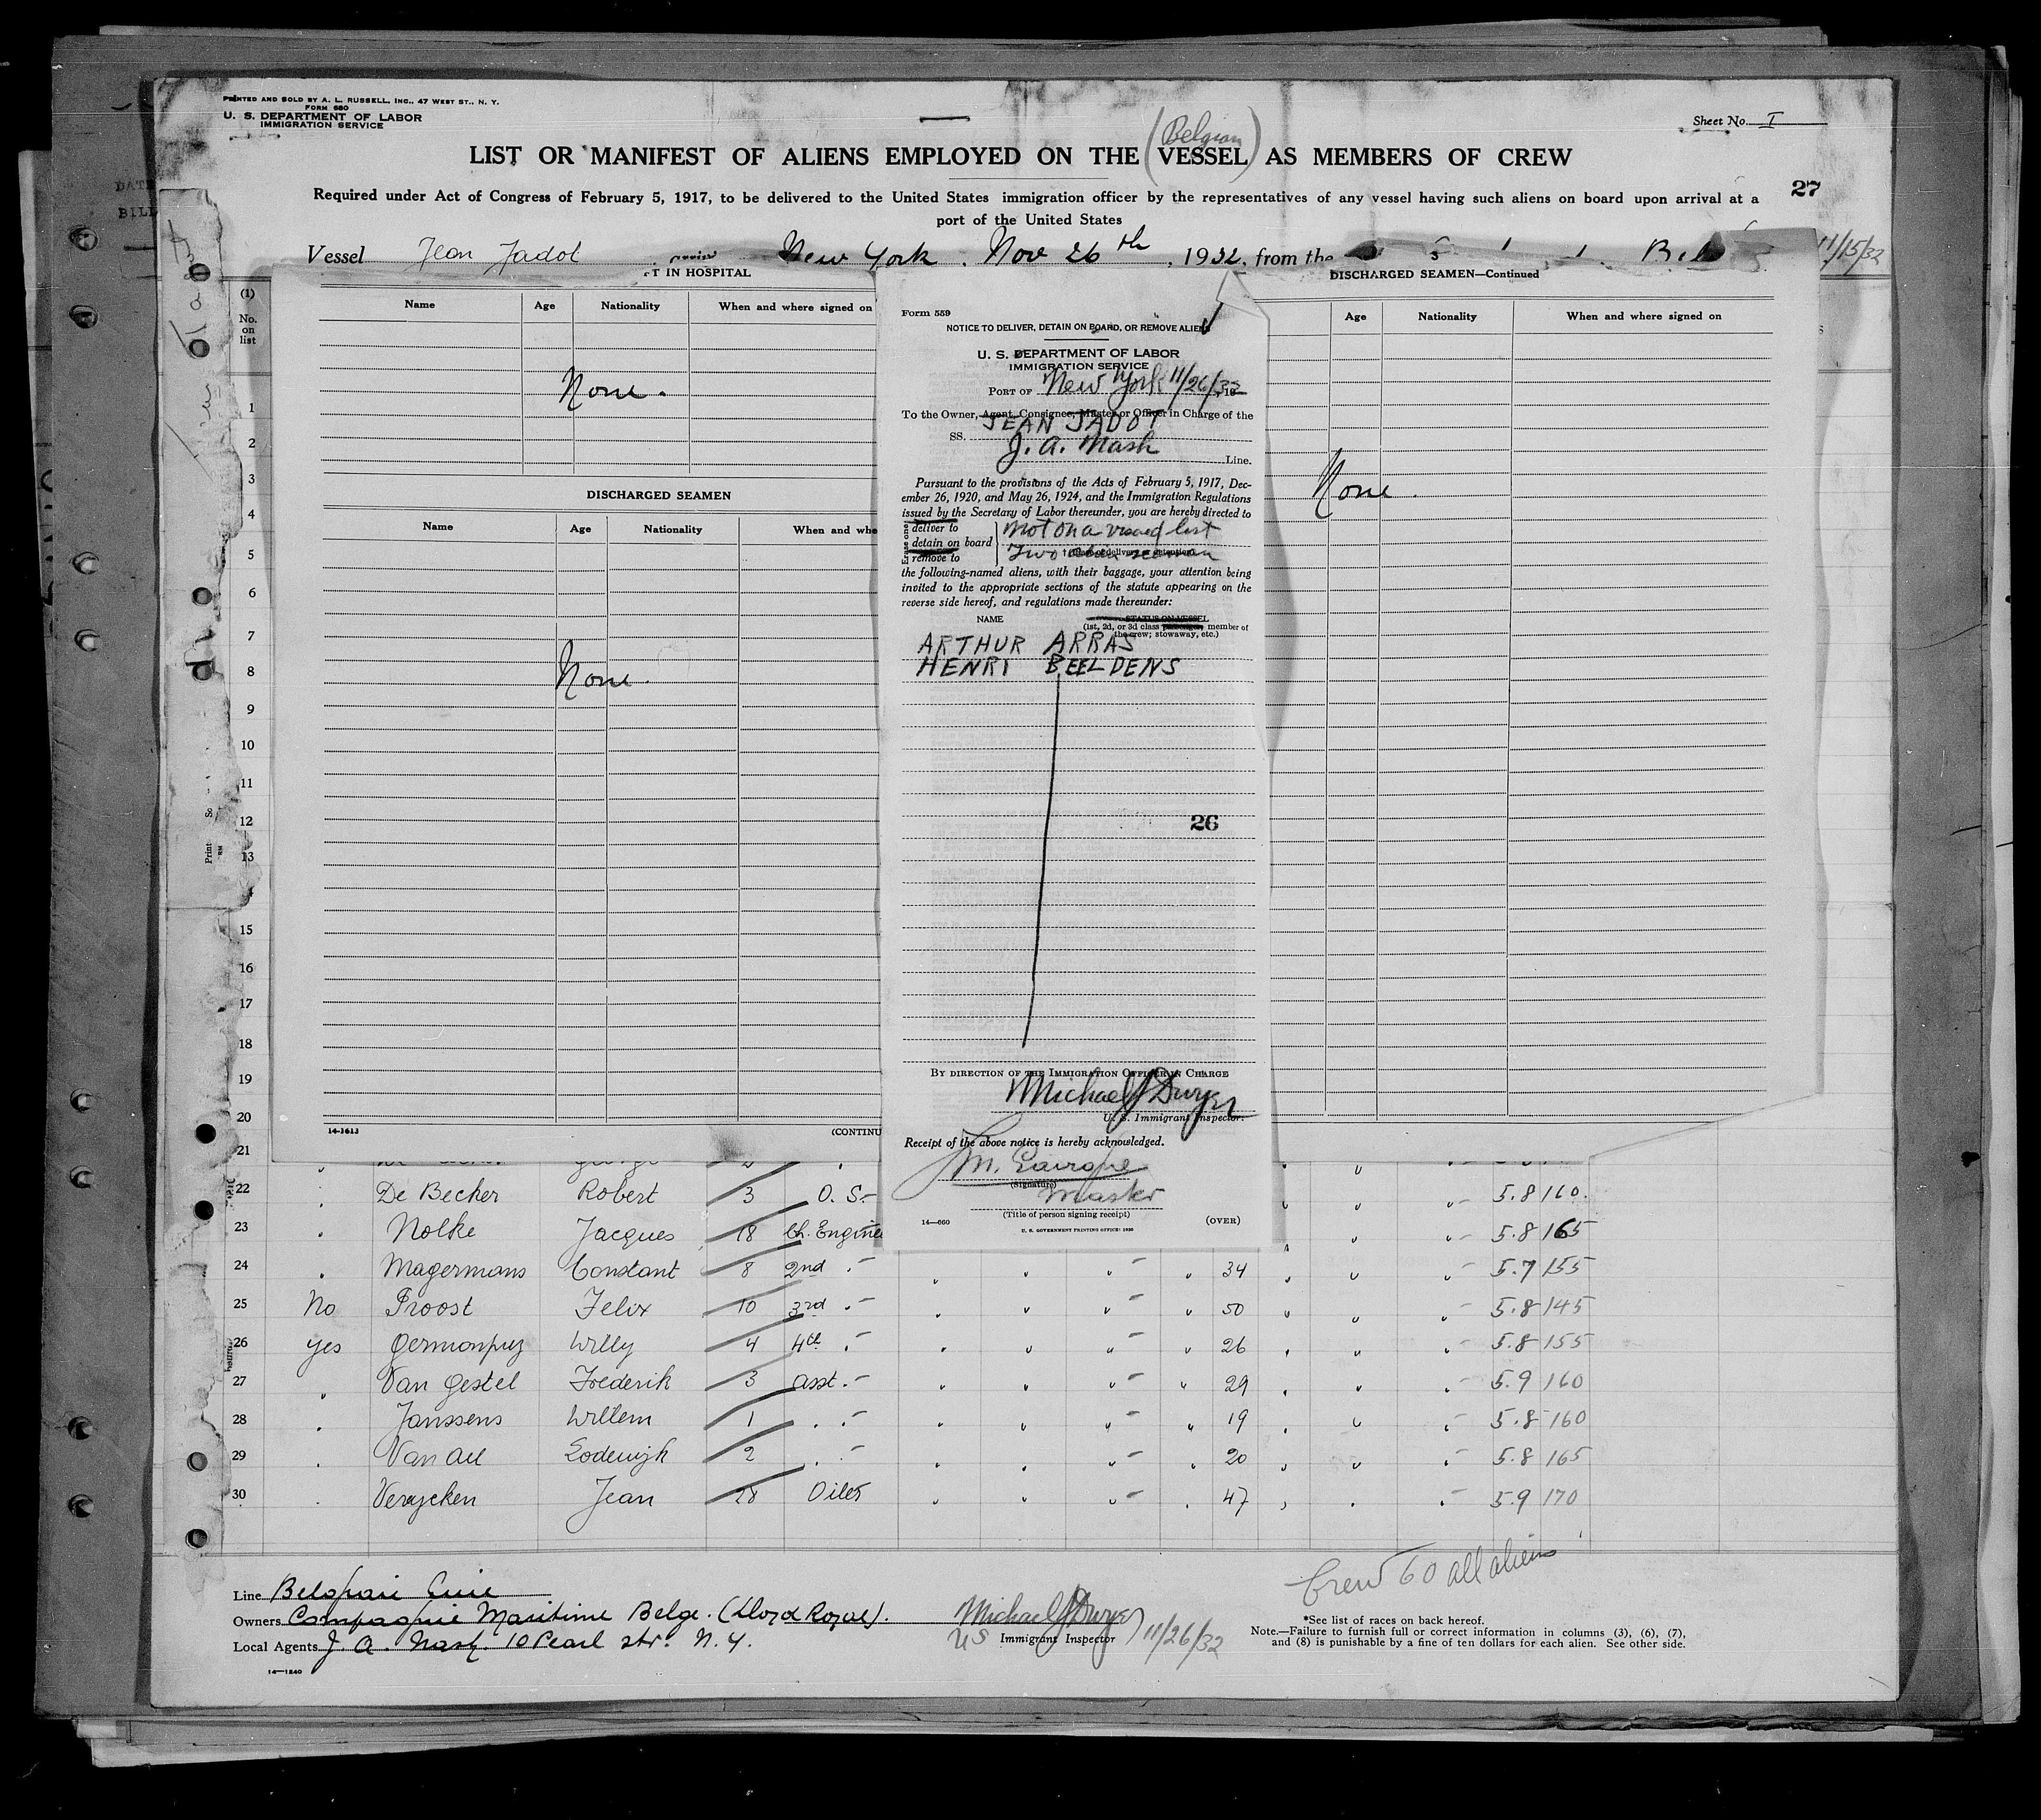 PRINTED AND SOLD BY A. L. RUSSELL, INC., 47 WEST ST., N. Y.
FORM 680
U. S. DEPARTMENT OF LABOR
IMMIGRATION SERVICE
Sheet No. I
(Belgian)
LIST OR MANIFEST OF ALIENS EMPLOYED ON THE VESSEL AS MEMBERS OF CREW
27
Required under Act of Congress of February 5, 1917, to be delivered to the United States immigration officer by the representatives of any vessel having such aliens on board upon arrival at a
port of the United States
Vessel Jean Jadot New York. Nov 26th, 1932, from the 11/15/32
T IN HOSPITAL
Name Age Nationality When and where signed on
None.
DISCHARGED SEAMEN
Name Age Nationality When and whe
None.
14-1613
(CONTINU
DISCHARGED SEAMEN—Continued
Age Nationality When and where signed on
None.
Form 559
NOTICE TO DELIVER, DETAIN ON BOARD, OR REMOVE ALIENS
U. S. DEPARTMENT OF LABOR
IMMIGRATION SERVICE
PORT OF New York 11/26/32, 19
To the Owner, Agent, Consignee, Master or Officer in Charge of the
SS. JEAN JADOT
J. A. Nash Line.
Pursuant to the provisions of the Acts of February 5, 1917, Dec-
ember 26, 1920, and May 26, 1924, and the Immigration Regulations
issued by the Secretary of Labor thereunder, you are hereby directed to
Erase one
deliver to
detain on board
remove to
Not on a visaed list
Two alien seaman
the following-named aliens, with their baggage, your attention being
invited to the appropriate sections of the statute appearing on the
reverse side hereof, and regulations made thereunder:
NAME STATUS ON VESSEL
(1st, 2d, or 3d class passenger, member of
the crew; stowaway, etc.)
ARTHUR ARRAS
HENRI BEELDENS
26
BY DIRECTION OF THE IMMIGRATION OFFICER IN CHARGE
Michael J Dwyer
U. S. Immigrant Inspector.
Receipt of the above notice is hereby acknowledged.
(Signature)
Master
(Title of person signing receipt)
14—660 (OVER)
U. S. GOVERNMENT PRINTING OFFICE: 1930
(1)
No.
on
list
1
2
3
4
5
6
7
8
9
10
11
12
13
15
16
17
18
19
20
21
22 " De Becker Robert 3 O. S.- " " " 5.8 160.
23 " Nolke Jacques 18 Ch. Enginee " " " 5.8 165
24 " Magermans Constant 8 2nd " " " " " 34 " " " 5.7 155
25 No Proost Felix 10 3rd " " " " " 50 " " " 5.8 145
26 yes Germonprez Willy 4 4th " " " " " 26 " " " 5.8 155
27 " Van Gestel Frederik 3 asst. " " " " 29 " " " 5.9 160
28 " Janssens Willem 1 " " " " " " 19 " " " 5.8 160
29 " Van Aal Lodewijk 2 " " " " " " 20 " " " 5.8 165
30 " Verrycken Jean 28 Oiler " " " " 47 " " " 5.9 170
Crew 60 all aliens
Line Belgian Line
Owners Compagnie Maritime Belge. (Lloyd Royal).
Local Agents J. A. Nash. 10 Pearl str. N. Y.
14—1240
Michael J Dwyer
US Immigrant Inspector 11/26/32
*See list of races on back hereof.
Note.—Failure to furnish full or correct information in columns (3), (6), (7),
and (8) is punishable by a fine of ten dollars for each alien. See other side.